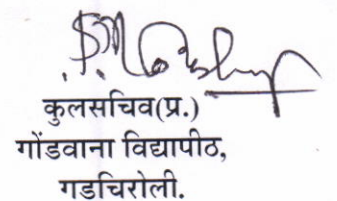 कुलसचिव(प्र.)
गोंडवाना विद्यापीठ,
गडचिरोली.